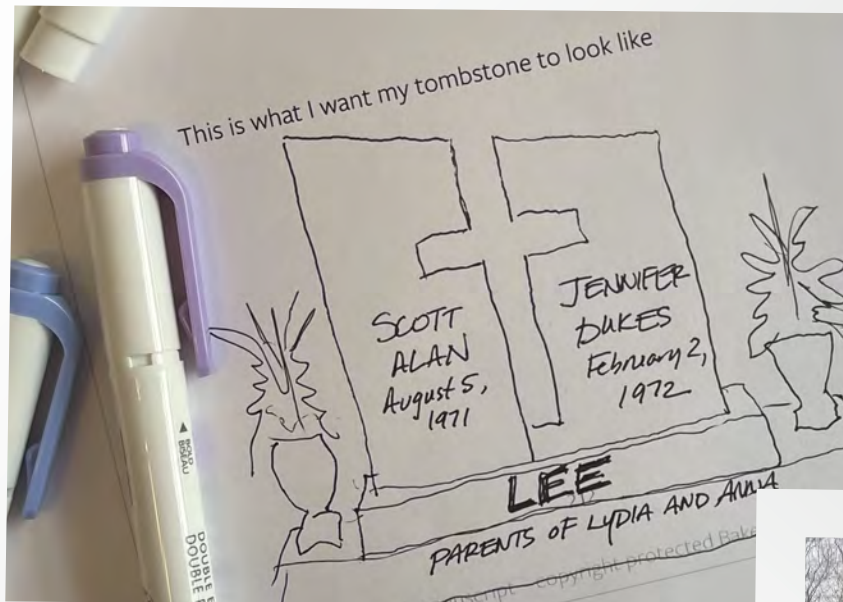 This is what I want my tombstone to look like
SCOTT
ALAN
August 5,
1971
JENNIFER
DUKES
February 2,
1972
LEE
PARENTS OF LYDIA AND ANNA
copyright protected Bake
BOLD
BISEAU
DOUBLE
DOUBLE